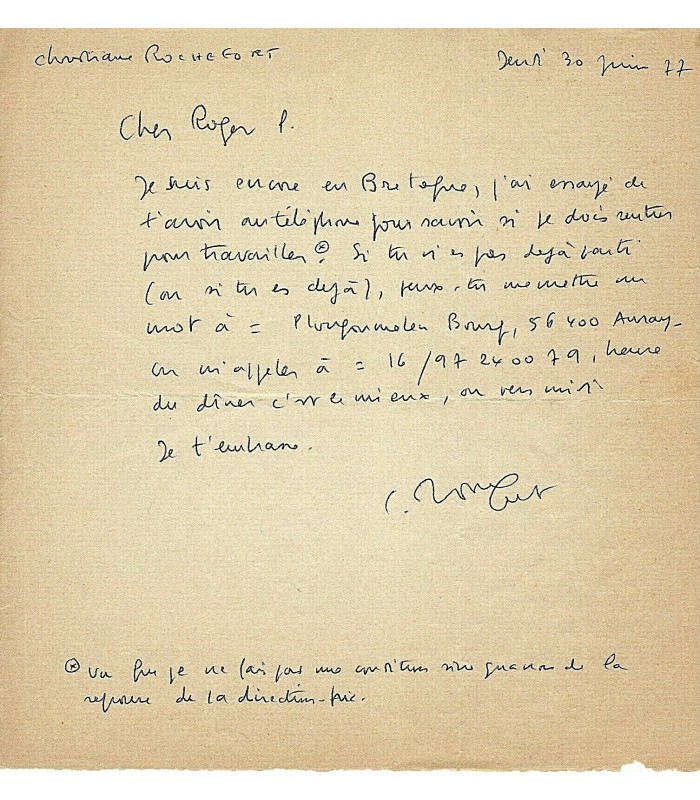 Christiane ROCHEFORT
Jeudi 30 juin 77
Cher Roger P.
Je suis encore en Bretagne, j'ai essayé de
t'avoir au téléphone pour savoir si je dois rentrer
pour travailler ⊛. Si tu n'es pas dejà parti
(ou si tu es dejà), peux-tu me mettre un
mot à = Plougoumelen Bourg, 56 400 Auray_
ou m'appeler à = 16 /97 24 00 79, heure
du dîner c'est le mieux, ou vers midi
Je t'embrasse.
C. Rochefort
⊛ vu que je ne fais pas une condition sine qua non de la
reponse de la direction-fric.